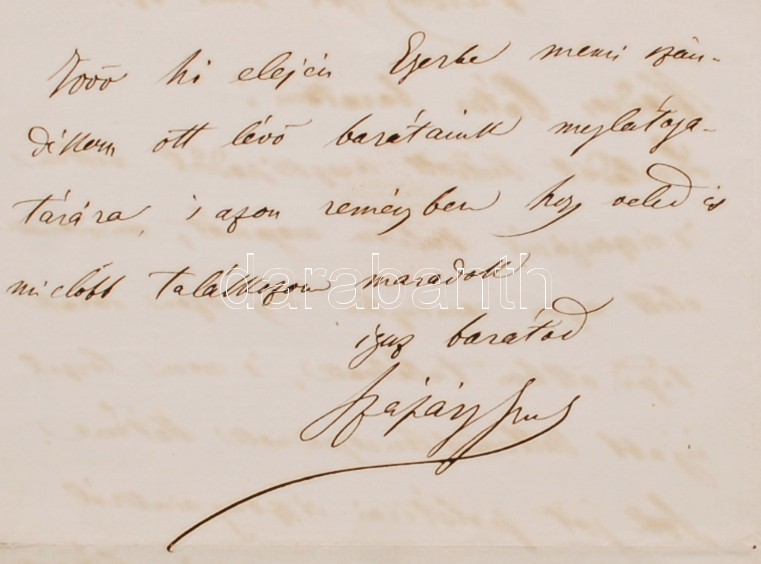 Jövő hó elején Egerbe menni szán-
dékom ott lévő barátaink meglátoga-
tására, s azon reményben hogy veled is
mielőbb találkozom maradok
igaz barátod
Szapáry
darabanth